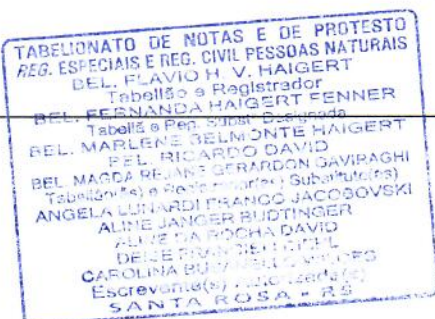 TABELIONATO DE NOTAS E DE PROTESTO
REG. ESPECIAIS E REG. CIVIL PESSOAS NATURAIS
BEL. FLAVIO H. V. HAIGERT
Tabelião e Registrador
BEL. FERNANDA HAIGERT FENNER
Tabeliã e Reg. Subst. Designada
BEL. MARLENE BELMONTE HAIGERT
BEL. RICARDO DAVID
BEL. MAGDA REJANE GERARDON GAVIRAGHI
Tabeliães(s) e Registrador(es) Substituto(es)
ANGELA LUNARDI FRANCO JACOBOVSKI
ALINE JANGER BUDTINGER
ALINE DA ROCHA DAVID
CAROLINA
Escrevente(s) Autorizada(s)
SANTA ROSA - RS